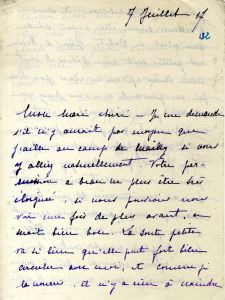 7 Juillet 17
132
Mon mari chéri – Je me demande
s'il n'y aurait pas moyen que
j'aille au camp de Mailly si vous
y allez naturellement. Votre per-
mission a beau ne plus être très
éloignée, si nous pouvions nous
voir une fois de plus avant, ce
serait bien bon. La petite
va si bien qu'elle peut fort bien
circuler avec moi, et comme je
la nourris, il n'y a rien à craindre